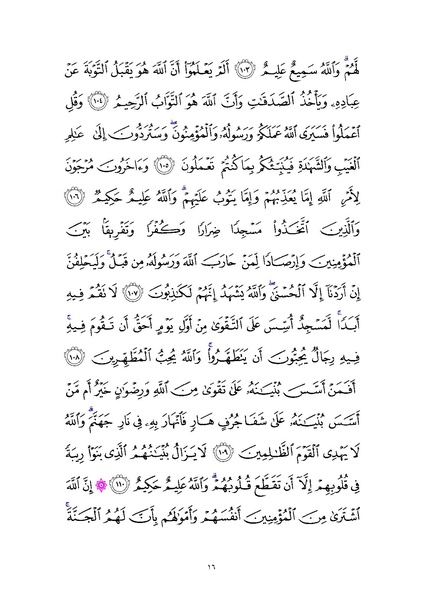 لَّهُمْۗ وَٱللَّهُ سَمِيعٌ عَلِيمٌ ١٠٣ أَلَمْ يَعْلَمُوٓا۟ أَنَّ ٱللَّهَ هُوَ يَقْبَلُ ٱلتَّوْبَةَ عَنْ
عِبَادِهِۦ وَيَأْخُذُ ٱلصَّدَقَٰتِ وَأَنَّ ٱللَّهَ هُوَ ٱلتَّوَّابُ ٱلرَّحِيمُ ١٠٤ وَقُلِ
ٱعْمَلُوا۟ فَسَيَرَى ٱللَّهُ عَمَلَكُمْ وَرَسُولُهُۥ وَٱلْمُؤْمِنُونَۖ وَسَتُرَدُّونَ إِلَىٰ عَٰلِمِ
ٱلْغَيْبِ وَٱلشَّهَٰدَةِ فَيُنَبِّئُكُم بِمَا كُنتُمْ تَعْمَلُونَ ١٠٥ وَءَاخَرُونَ مُرْجَوْنَ
لِأَمْرِ ٱللَّهِ إِمَّا يُعَذِّبُهُمْ وَإِمَّا يَتُوبُ عَلَيْهِمْۗ وَٱللَّهُ عَلِيمٌ حَكِيمٌ ١٠٦
وَٱلَّذِينَ ٱتَّخَذُوا۟ مَسْجِدًا ضِرَارًا وَكُفْرًا وَتَفْرِيقًۢا بَيْنَ
ٱلْمُؤْمِنِينَ وَإِرْصَادًا لِّمَنْ حَارَبَ ٱللَّهَ وَرَسُولَهُۥ مِن قَبْلُۚ وَلَيَحْلِفُنَّ
إِنْ أَرَدْنَآ إِلَّا ٱلْحُسْنَىٰۖ وَٱللَّهُ يَشْهَدُ إِنَّهُمْ لَكَٰذِبُونَ ١٠٧ لَا تَقُمْ فِيهِ
أَبَدًاۚ لَّمَسْجِدٌ أُسِّسَ عَلَى ٱلتَّقْوَىٰ مِنْ أَوَّلِ يَوْمٍ أَحَقُّ أَن تَقُومَ فِيهِۚ
فِيهِ رِجَالٌ يُحِبُّونَ أَن يَتَطَهَّرُوا۟ۚ وَٱللَّهُ يُحِبُّ ٱلْمُطَّهِّرِينَ ١٠٨
أَفَمَنْ أَسَّسَ بُنْيَٰنَهُۥ عَلَىٰ تَقْوَىٰ مِنَ ٱللَّهِ وَرِضْوَٰنٍ خَيْرٌ أَم مَّنْ
أَسَّسَ بُنْيَٰنَهُۥ عَلَىٰ شَفَا جُرُفٍ هَارٍ فَٱنْهَارَ بِهِۦ فِى نَارِ جَهَنَّمَۗ وَٱللَّهُ
لَا يَهْدِى ٱلْقَوْمَ ٱلظَّٰلِمِينَ ١٠٩ لَا يَزَالُ بُنْيَٰنُهُمُ ٱلَّذِى بَنَوْا۟ رِيبَةً
فِى قُلُوبِهِمْ إِلَّآ أَن تَقَطَّعَ قُلُوبُهُمْۗ وَٱللَّهُ عَلِيمٌ حَكِيمٌ ١١٠ ۞ إِنَّ ٱللَّهَ
ٱشْتَرَىٰ مِنَ ٱلْمُؤْمِنِينَ أَنفُسَهُمْ وَأَمْوَٰلَهُم بِأَنَّ لَهُمُ ٱلْجَنَّةَۚ
١٦